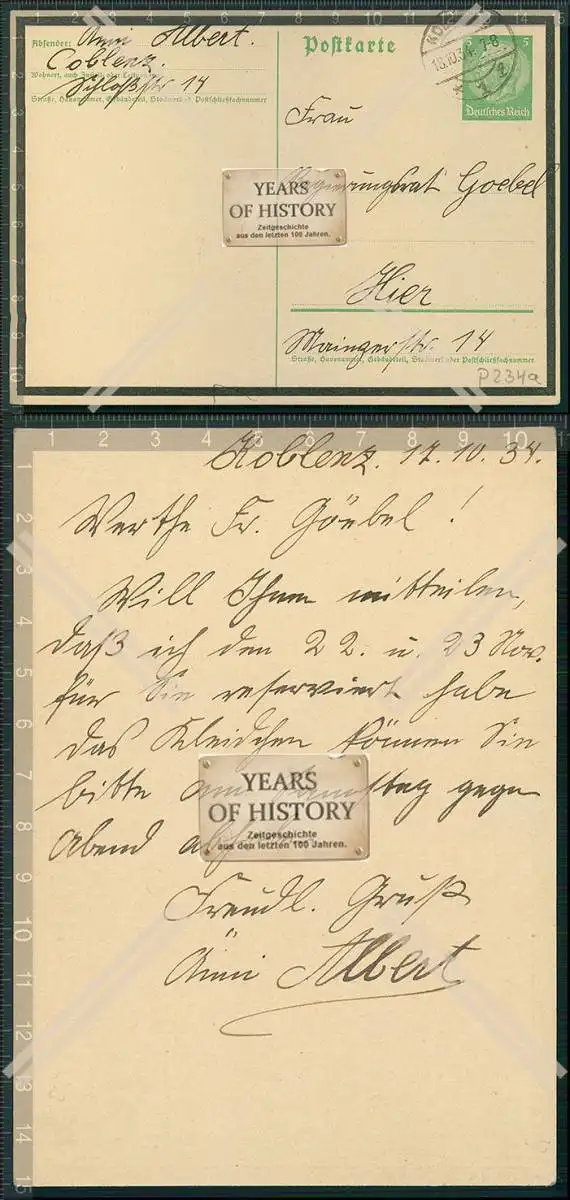 Absender: Anni Albert.
Coblenz.
Wohnort, auch Zustell- oder Leitpostamt
Schloßstr 14
Straße, Hausnummer, Gebäudeteil, Stockwerk od. Postschließfachnummer
Postkarte
5
Deutsches Reich
18.10.34. 7-8
Frau
Regierungsrat Goebel
Hier
Mainzerstr. 14
Straße, Hausnummer, Gebäudeteil, Stockwerk oder Postschließfachnummer
P234a
YEARS
OF HISTORY
Zeitgeschichte
aus den letzten 100 Jahren.
Koblenz. 17.10.34.
Werthe Fr. Göebel!
Will Ihnen mitteilen,
daß ich den 22. u. 23 Nov.
für Sie reserviert habe
das Kleidchen können Sie
bitte am Samstag gegen
Abend
YEARS
OF HISTORY
Zeitgeschichte
aus den letzten 100 Jahren.
Freundl. Gruß
Änni Albert